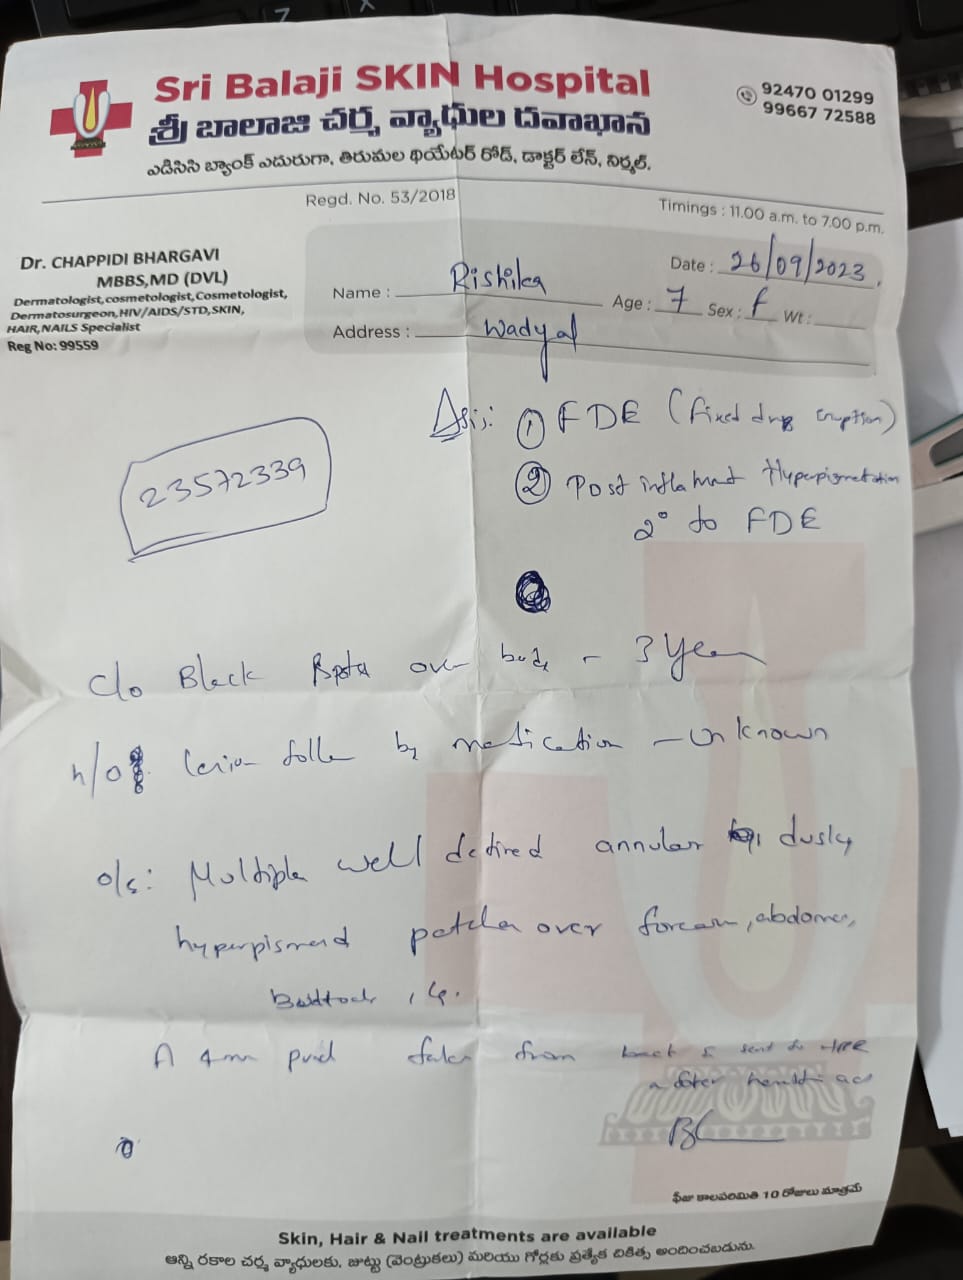 Sri Balaji SKIN Hospital
శ్రీ బాలాజి చర్మ వ్యాధుల దవాఖాన
ఎడిసిసి బ్యాంక్ ఎదురుగా, తిరుమల థియేటర్ రోడ్, డాక్టర్ లేన్, నిర్మల్.
92470 01299
99667 72588
Regd. No. 53/2018
Timings : 11.00 a.m. to 7.00 p.m.
Dr. CHAPPIDI BHARGAVI
MBBS,MD (DVL)
Dermatologist,cosmetologist,Cosmetologist,
Dermatosurgeon,HIV/AIDS/STD,SKIN,
HAIR,NAILS Specialist
Reg No: 99559
Name : Rishika
Date : 26/09/2023
Age : 7 Sex : f Wt :
Address : Wadyal
23572339
① FDE (Fixed drug Eruption)
② Post inflamat Hyperpigmetation
2° to FDE
c/o Black spots over body - 3 year
h/o lesion by medication - Unknown
o/e: Multiple well defined annular dusky
hyperpigmend patches over forearm, abdomen,
Buttock,
A 4mm from back & sent to HPR
BC
ఫీజు కాలపరిమితి 10 రోజులు మాత్రమే
Skin, Hair & Nail treatments are available
అన్ని రకాల చర్మ వ్యాధులకు, జుట్టు (వెంట్రుకలు) మరియు గోర్లకు ప్రత్యేక చికిత్స అందించబడును.